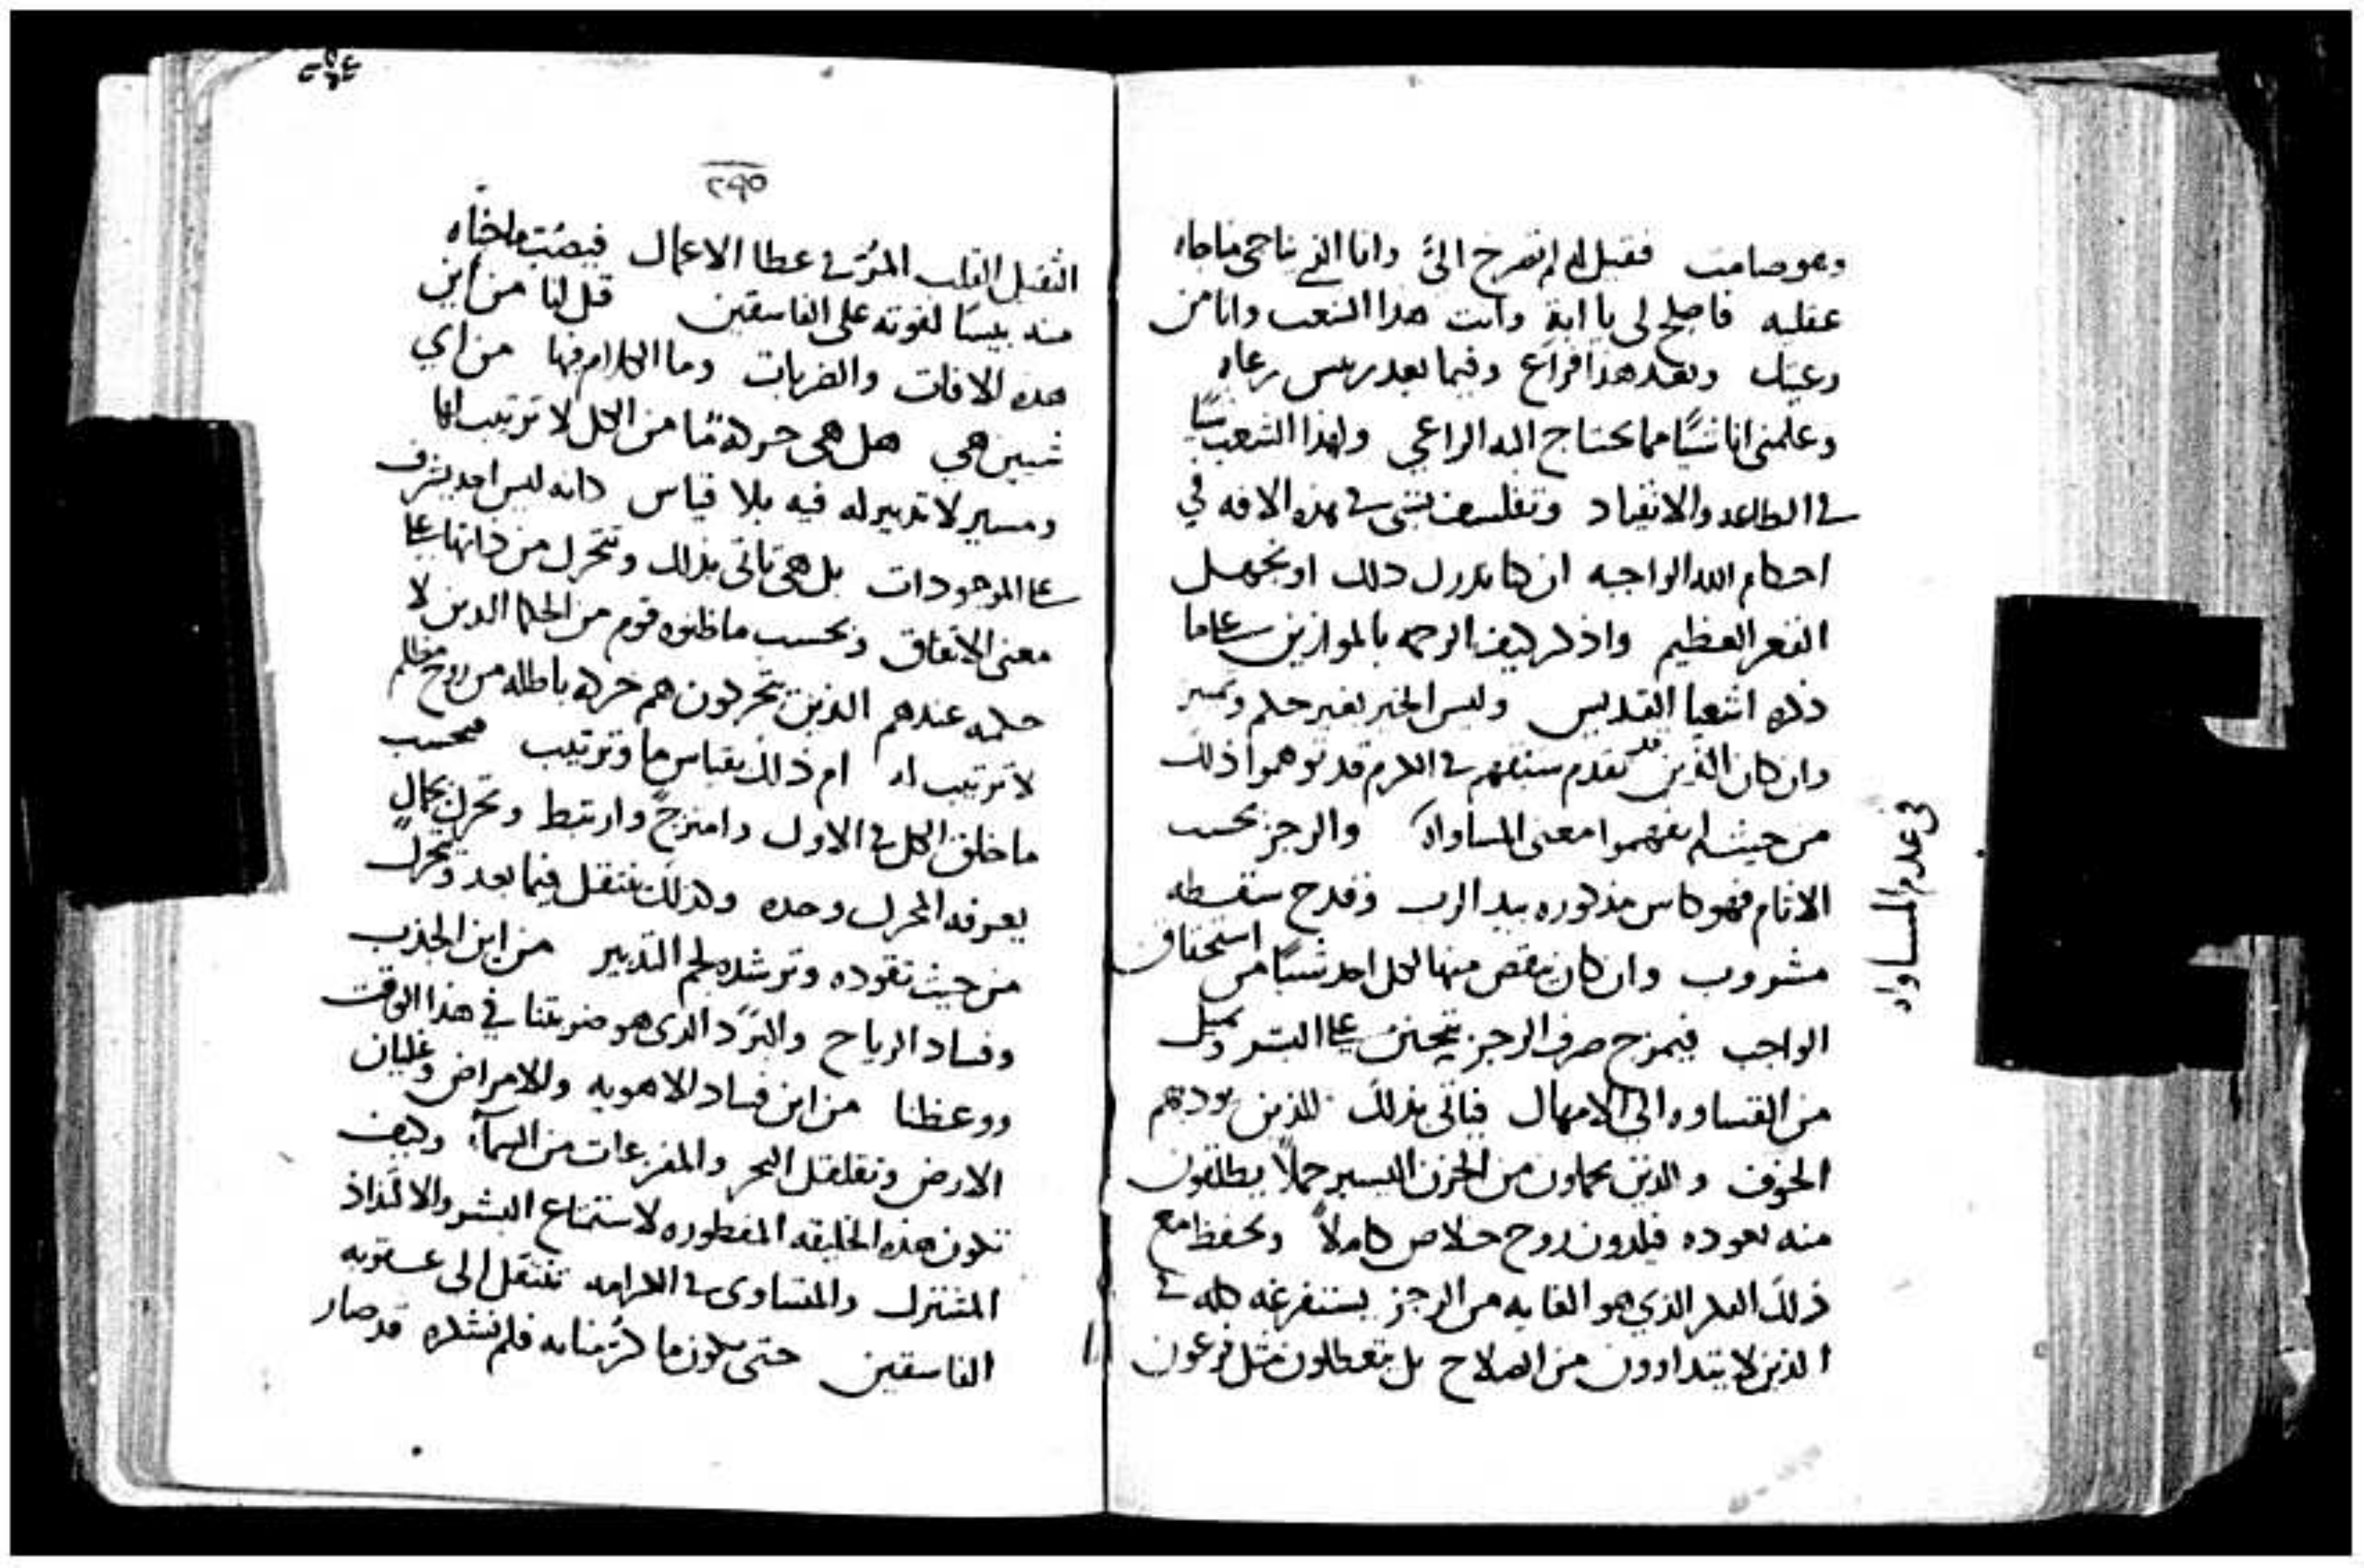 وهو صامت فقيل له لم تصرخ الىَّ وانا الذي ناحى مناجاه
عقليه فاصلح لى يا ابة وانت هذا الشعب وانا من
رعيتك وبعد هذا افراع وفيما بعد رييس رعاه
وعلمنى انا شيًا مما يحتاج اليه الراعي ولهذا الشعب شيًا
فى الطاعه والانقياد وتفلسف بشى فى هذه الافه في
احكام الله الواجبه ان كنا ندرك ذلك او نجهل
القعر العظيم واذكر كيف الرحمه بالموازين على ما
ذكره اشعيا القديس وليس الخير بغير حكم وتمييز
وان كان الذين قد تقدم سبقهم فى الكرم قد توهموا ذلك
من حيث لم يفهموا معنى المساواة والرجز بحسب
الاثام فهو كاس مذكوره بيد الرب وقدح سقطه
مشروب وان كان ينقص منها لكل احد شيئًا من استحقاق
الواجب فيمزج صرف الرجز بتحنن على البشر ويميل
من القساوه الى الامهال فياتى بذلك للذين يودبهم
الخوف والذين يحملون من الحزن اليسير حملاً يطلقون
منه بعوده فيلدون روح خلاص كاملاً ويحفظ مع
ذلك العكر الذي هو الغايه من الرجز يستفرغه كله فى
الذين لا يتداوون من الصلاح بل يتعطلون مثل فرعون
في عدم المساواه
٢٩٥
الثقيل القلب المرّ فى عطا الاعمال فيصُبّ ماختاه
منه بيسًا لقوته على الفاسقين قل لنا من اين
هذه الافات والضربات وما الكلام فيها من اي
شيين هي هل هى حركة مّا من الكل لا ترتيب لها
ومسير لا تدبير له فيه بلا قياس كانه ليس احد يشرف
على الموجودات بل هى تاتى بذلك وتتحرك من ذاتها على
معنى الاتفاق وبحسب ما ظنوه قوم من الحكما الذين لا
حكمه عندهم الذين يتحركون هم حركه باطله من روح مظلم
لا ترتيب له ام ذلك بقياس ما وترتيب بحسب
ما خلق الكل فى الاول وامتزج وارتبط وتحرك بحالٍ
يعرفه المحرك وحده وكذلك ينتقل فيما بعد ويتحرك
من حيث تقوده وترشده لجم التدبير من اين الجدب
وفساد الرياح والبَرَد الذى هو ضربتنا في هذا الوقت
ووعظنا من اين فساد الاهويه والامراض وغليان
الارض وتقلقل البحر والمفزعات من السمآء وكيف
تكون هذه الخليقه المفطوره لاستمتاع البشر والالتذاذ
المشترك والمتساوى فى الكرامه تنتقل الى عقوبه
الفاسقين حتى يكون ما كرّمنا به فلم نشكره قد صار